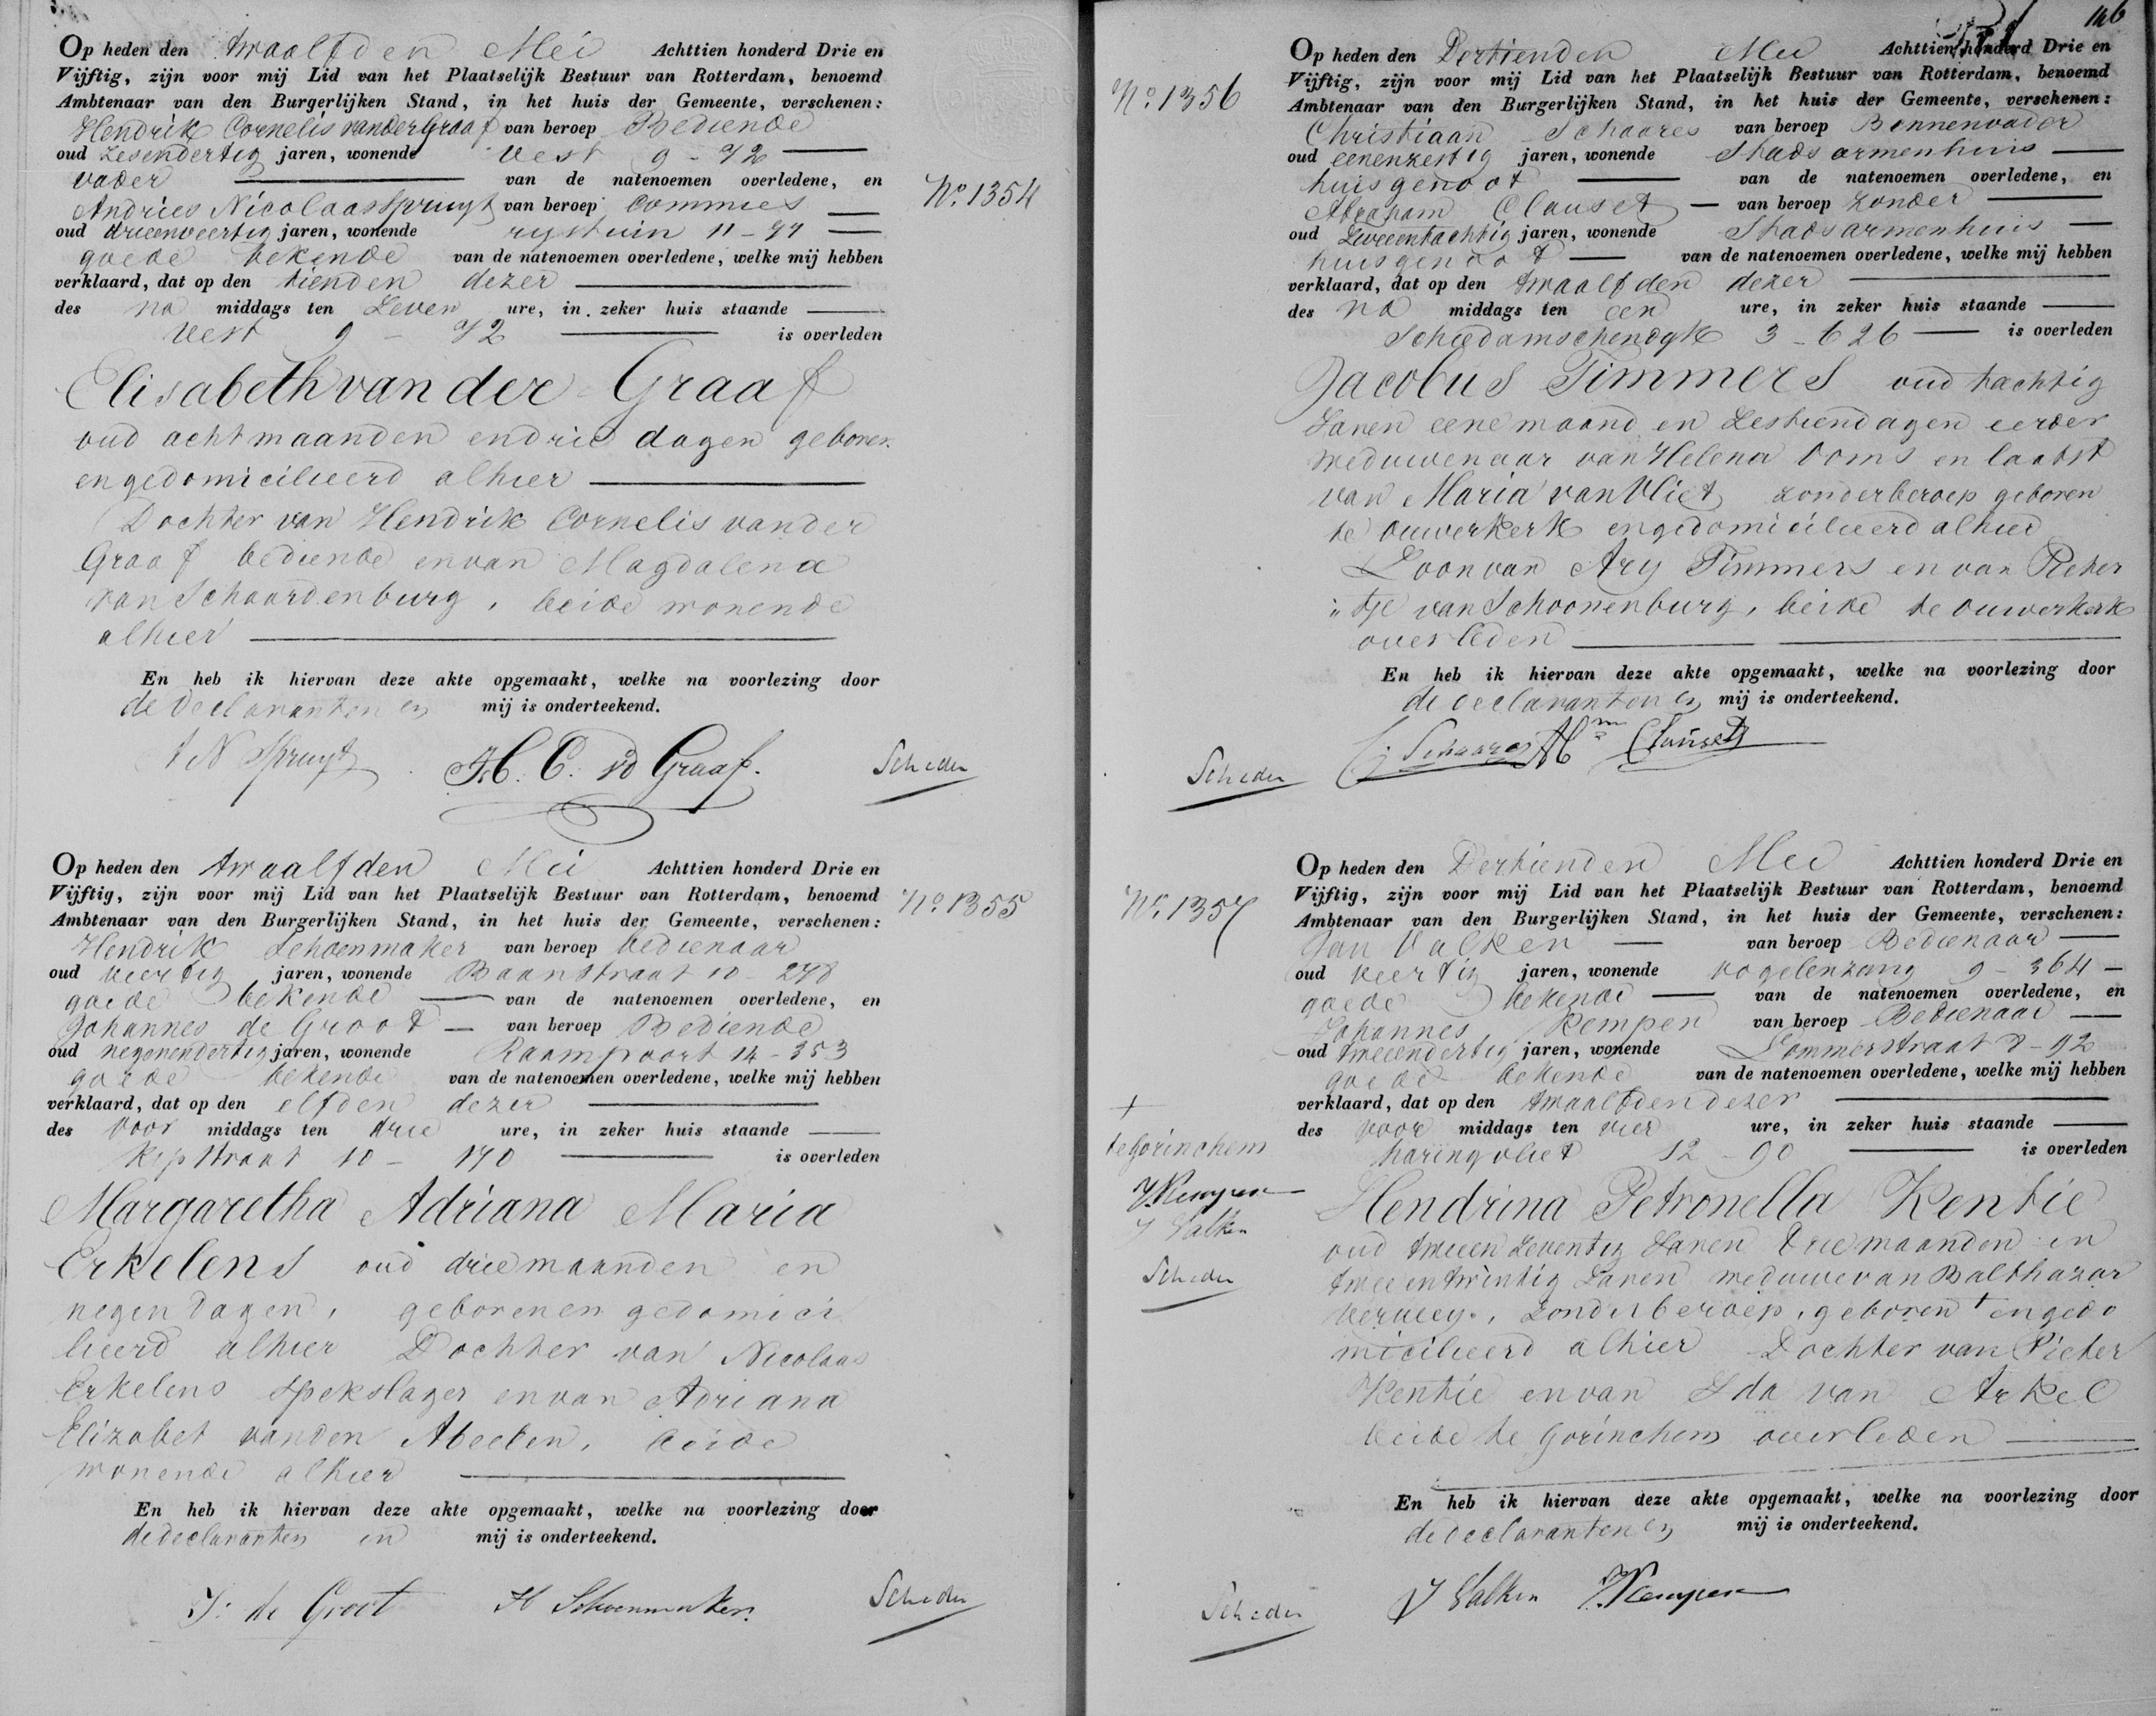 Op heden den twaalfden Mei Achttien honderd Drie en
Vijftig, zijn voor mij Lid van het Plaatselijk Bestuur van Rotterdam, benoemd
Ambtenaar van den Burgerlijken Stand, in het huis der Gemeente, verschenen:
Hendrik Cornelis van der Graaf van beroep Bediende
oud zesendertig jaren, wonende Vest 9-92
vader van de natenoemen overledene, en
No. 1354
Andries Nicolaas Spruyt van beroep Commies
oud drieenveertig jaren, wonende rystuin 11-
goede bekende van de natenoemen overledene, welke mij hebben
verklaard, dat op den tienden dezer
des na middags ten zeven ure, in zeker huis staande
Vest 9 - 92 is overleden
Elisabeth van der Graaf
oud acht maanden en drie dagen geboren
en gedomicilieerd alhier
Dochter van Hendrik Cornelis van der
Graaf bediende en van Magdalena
van Schaardenburg, beide wonende
alhier
En heb ik hiervan deze akte opgemaakt, welke na voorlezing door
de declaranten en mij is onderteekend.
A N Spruyt H. C. vd Graaf. Scheder
Op heden den twaalfden Mei Achttien honderd Drie en
Vijftig, zijn voor mij Lid van het Plaatselijk Bestuur van Rotterdam, benoemd
No. 1355
Ambtenaar van den Burgerlijken Stand, in het huis der Gemeente, verschenen:
Hendrik Schoenmaker van beroep bedienaar
oud veertig jaren, wonende Baanstraat 10-248
goede bekende van de natenoemen overledene, en
Johannes de Groot van beroep Bediende
oud negenendertig jaren, wonende Raampoort 14-353
goede bekende van de natenoemen overledene, welke mij hebben
verklaard, dat op den elfden dezer
des voor middags ten drie ure, in zeker huis staande
Kipstraat 10 - 170 is overleden
Margaretha Adriana Maria
Erkelens oud drie maanden en
negen dagen, geboren en gedomici
lieerd alhier Dochter van Nicolaas
Erkelens spekslager en van Adriana
Elizabet van den Abeelen, beide
wonende alhier
En heb ik hiervan deze akte opgemaakt, welke na voorlezing door
de declaranten en mij is onderteekend.
J: de Groot H Schoenmaker. Scheder
146
Op heden den Dertienden Mei Achttien honderd Drie en
Vijftig, zijn voor mij Lid van het Plaatselijk Bestuur van Rotterdam, benoemd
No. 1356
Ambtenaar van den Burgerlijken Stand, in het huis der Gemeente, verschenen:
Christiaan Schaares van beroep Binnenvader
oud eenenzestig jaren, wonende Stads armenhuis
huisgenoot van de natenoemen overledene, en
Abraham Clauset van beroep zonder
oud tweeentachtig jaren, wonende Stads armenhuis
huisgenoot van de natenoemen overledene, welke mij hebben
verklaard, dat op den twaalfden dezer
des na middags ten een ure, in zeker huis staande
Schiedamschendyk 3-626 is overleden
Jacobus Timmers oud tachtig
Jaren eene maand en zestien dagen eerder
weduwenaar van Helena Ooms en laatst
van Maria van Vliet zonder beroep geboren
te Ouwerkerk en gedomicilieerd alhier
Zoon van Ary Timmers en van Pieter
"tje van Schoonenburg, beide te Ouwerkerk
overleden
En heb ik hiervan deze akte opgemaakt, welke na voorlezing door
de declaranten en mij is onderteekend.
C: Schaares Abm Clauset
Scheder
Op heden den Dertienden Mei Achttien honderd Drie en
Vijftig, zijn voor mij Lid van het Plaatselijk Bestuur van Rotterdam, benoemd
No. 1357
Ambtenaar van den Burgerlijken Stand, in het huis der Gemeente, verschenen:
Jan Valken van beroep Bedienaar
oud veertig jaren, wonende vogelenzang 9-364
goede bekende van de natenoemen overledene, en
Johannes Kempen van beroep Bedienaar
oud tweeendertig jaren, wonende Lommerstraat 8-92
goede bekende van de natenoemen overledene, welke mij hebben
verklaard, dat op den twaalfden dezer
des voor middags ten vier ure, in zeker huis staande
haringvliet 12-90 is overleden
+
te Gorinchem
J. Kempen
J Valken
Scheder
Hendrina Petronella Kentie
oud tweeen zeventig Jaren Drie maanden en
twee en twintig Jaren weduwe van Balthazar
Verveey., zonder beroep, geboren + en gedo
micilieerd alhier Dochter van Pieter
Kentie en van Ida van Arkel
beide te Gorinchem overleden
En heb ik hiervan deze akte opgemaakt, welke na voorlezing door
de declaranten en mij is onderteekend.
Scheder J Valken J. Kempen